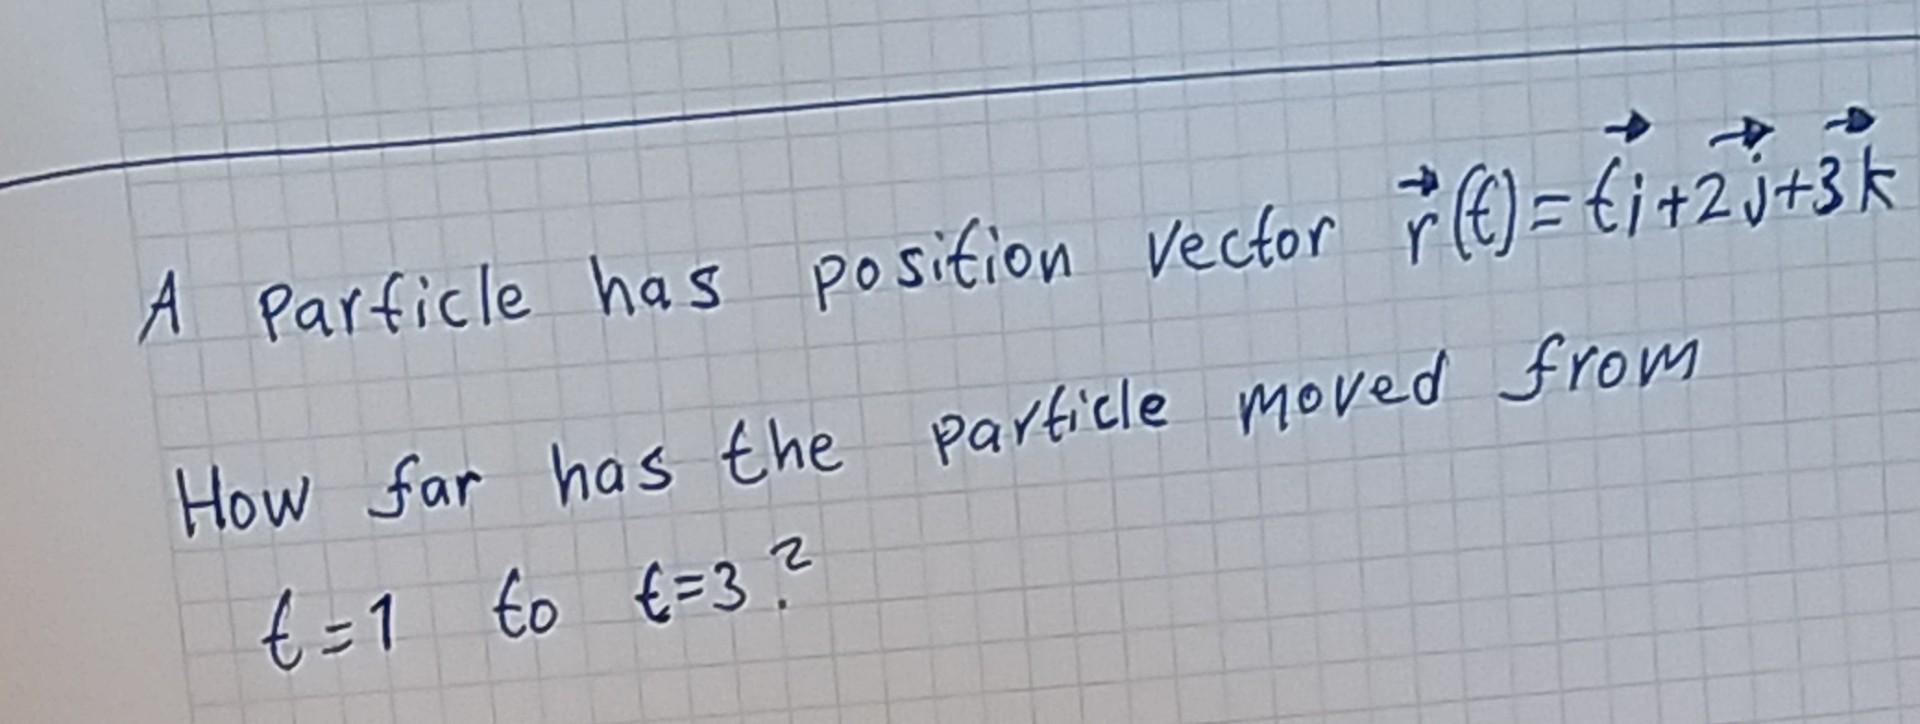 A particle has position vector r⃗(t)=ti⃗+2j⃗+3k⃗
How far has the particle moved from
t=1 to t=3?